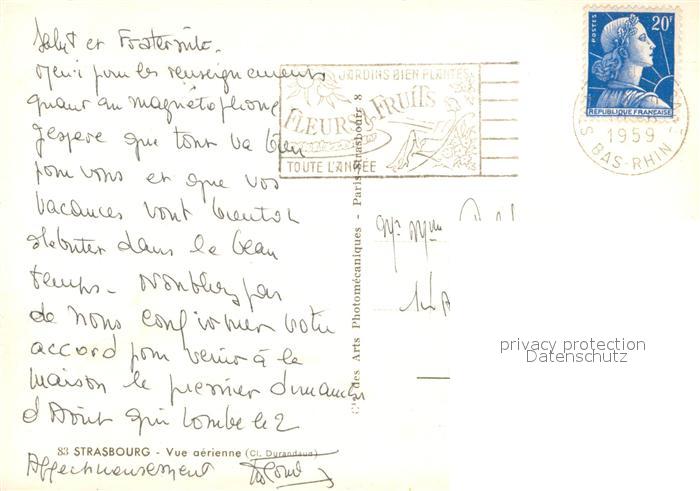 Salut et Fraternité.
Merci pour les renseignements
quant au magnétophone
J'espère que tout va bien
pour vous et que vos
vacances vont bientôt
débuter dans le beau
temps - N'oubliez pas
de nous confirmer votre
accord pour venir à la
maison le premier dimanche
d'Août qui tombe le 2
83 STRASBOURG - Vue aérienne (Cl. Durandaud)
Affectueusement
JARDINS BIEN PLANTES
FLEURS & FRUITS
TOUTE L'ANNÉE
POSTES
20F
REPUBLIQUE FRANÇAISE
1959
BAS-RHIN
Cie des Arts Photomécaniques - Paris-Strasbourg 8
Mr Mme
privacy protection
Datenschutz